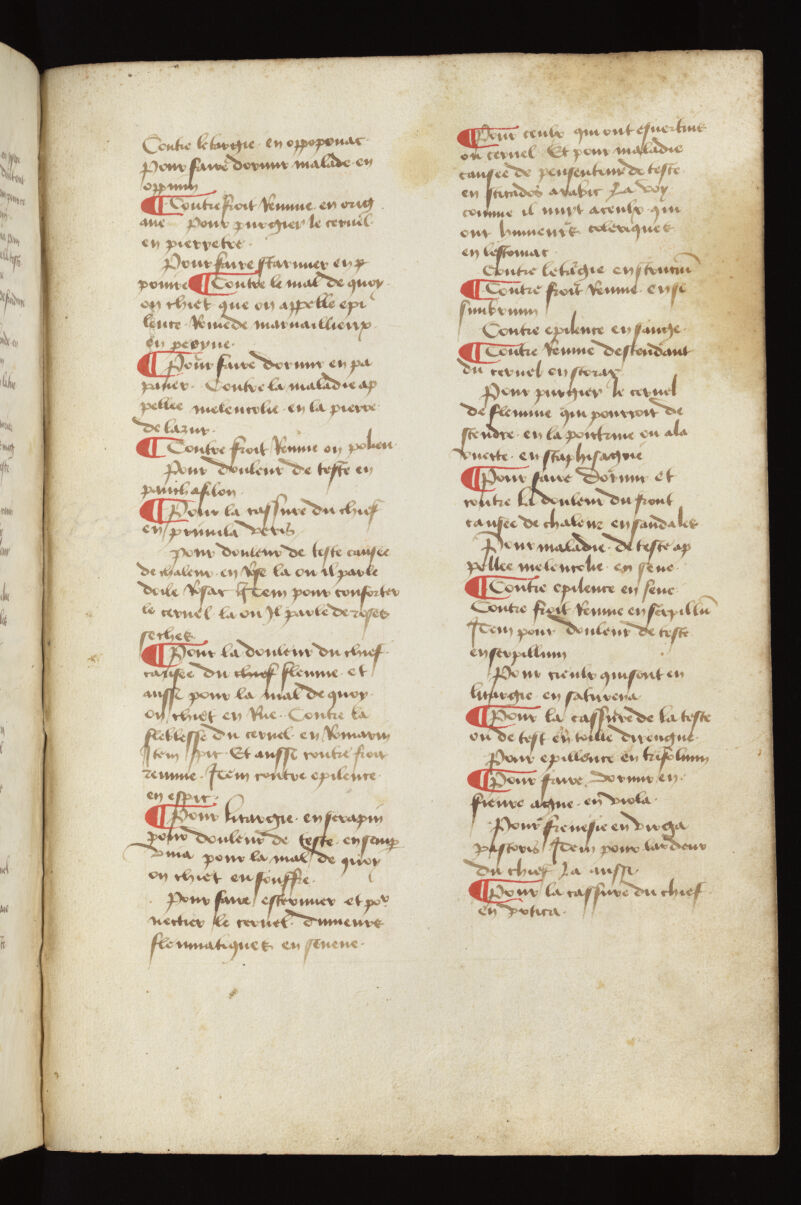 Contre letargie en oppoponac
Pour faire dormir malade en
oppium
¶ Contre froit Reume en orig
ane Pour purgier le cervel
en pierretre
Pour faire starnuer en p
poiure ¶ Contre le mal de quoy
on chiet que on appelle epi
lence Remede marvaillieux
en peoyne
¶ Pour faire dormir en pa
paver Contre la maladie ap
pellee melencolie en la pierre
de lazur
¶ Contre froit Reume en polieu
Pour douleur de teste en
¶ Pour la cassure du chief
en primula veris
Pour douleur de teste causee
de chaleur en Rose la ou il parle
doile Rosat Item pour conforter
le cervel la ou Il parle de roses
seches
¶ Pour la douleur du chief
causee du chief fleume et
ausse pour la mal de quoy
on chiet en Rue Contre la
fleblesse du cervel en Romarin
Item Et ausse contre froit
reume Item contre epilence
en espic
¶ Pour litargie en serapin
pour douleur de teste en semp
viva pour la mal de quoy
on chiet en souffre
Pour faire esternuer et por
nectier le cervel dumeurs
fleumatiques en seneve
¶ Pour ceulx qui ont esvertins
ou cervel Et pour maladie
causee de pensenteur de teste
en sticados arabic La voy
comme il nuyt a ceulx qui
ont humeurs coleriques
en lestomac
Contre letargie en
¶ Contre froit Reume en se
simbrium
Contre epilence en sauge
¶ Contre Reume descendant
du cervel en storax
Pour purgier le cervel
de fleume qui pourroit de
scendre en la poitrine ou a la
vuette en staphisagrie
¶ Pour faire dormir et
contre la douleur du front
causee de chaleur en sandales
Pour maladie de teste ap
pellee melencolie en sene
¶ Contre epilence en sene
Contre froit Reume en serpillum
Item pour douleur de teste
en serpillum
Pour ceulx qui sont en
litargie en satureia
¶ Pour la cassure de la teste
ou de test en toille direngne
Pour epillence en trifolium
¶ Pour faire dormir en
fievre ague en viola
Pour frenesie en virga
pastoris Item pour lardeur
du chief La ausse
¶ Pour la cassure du chief
en vrtica